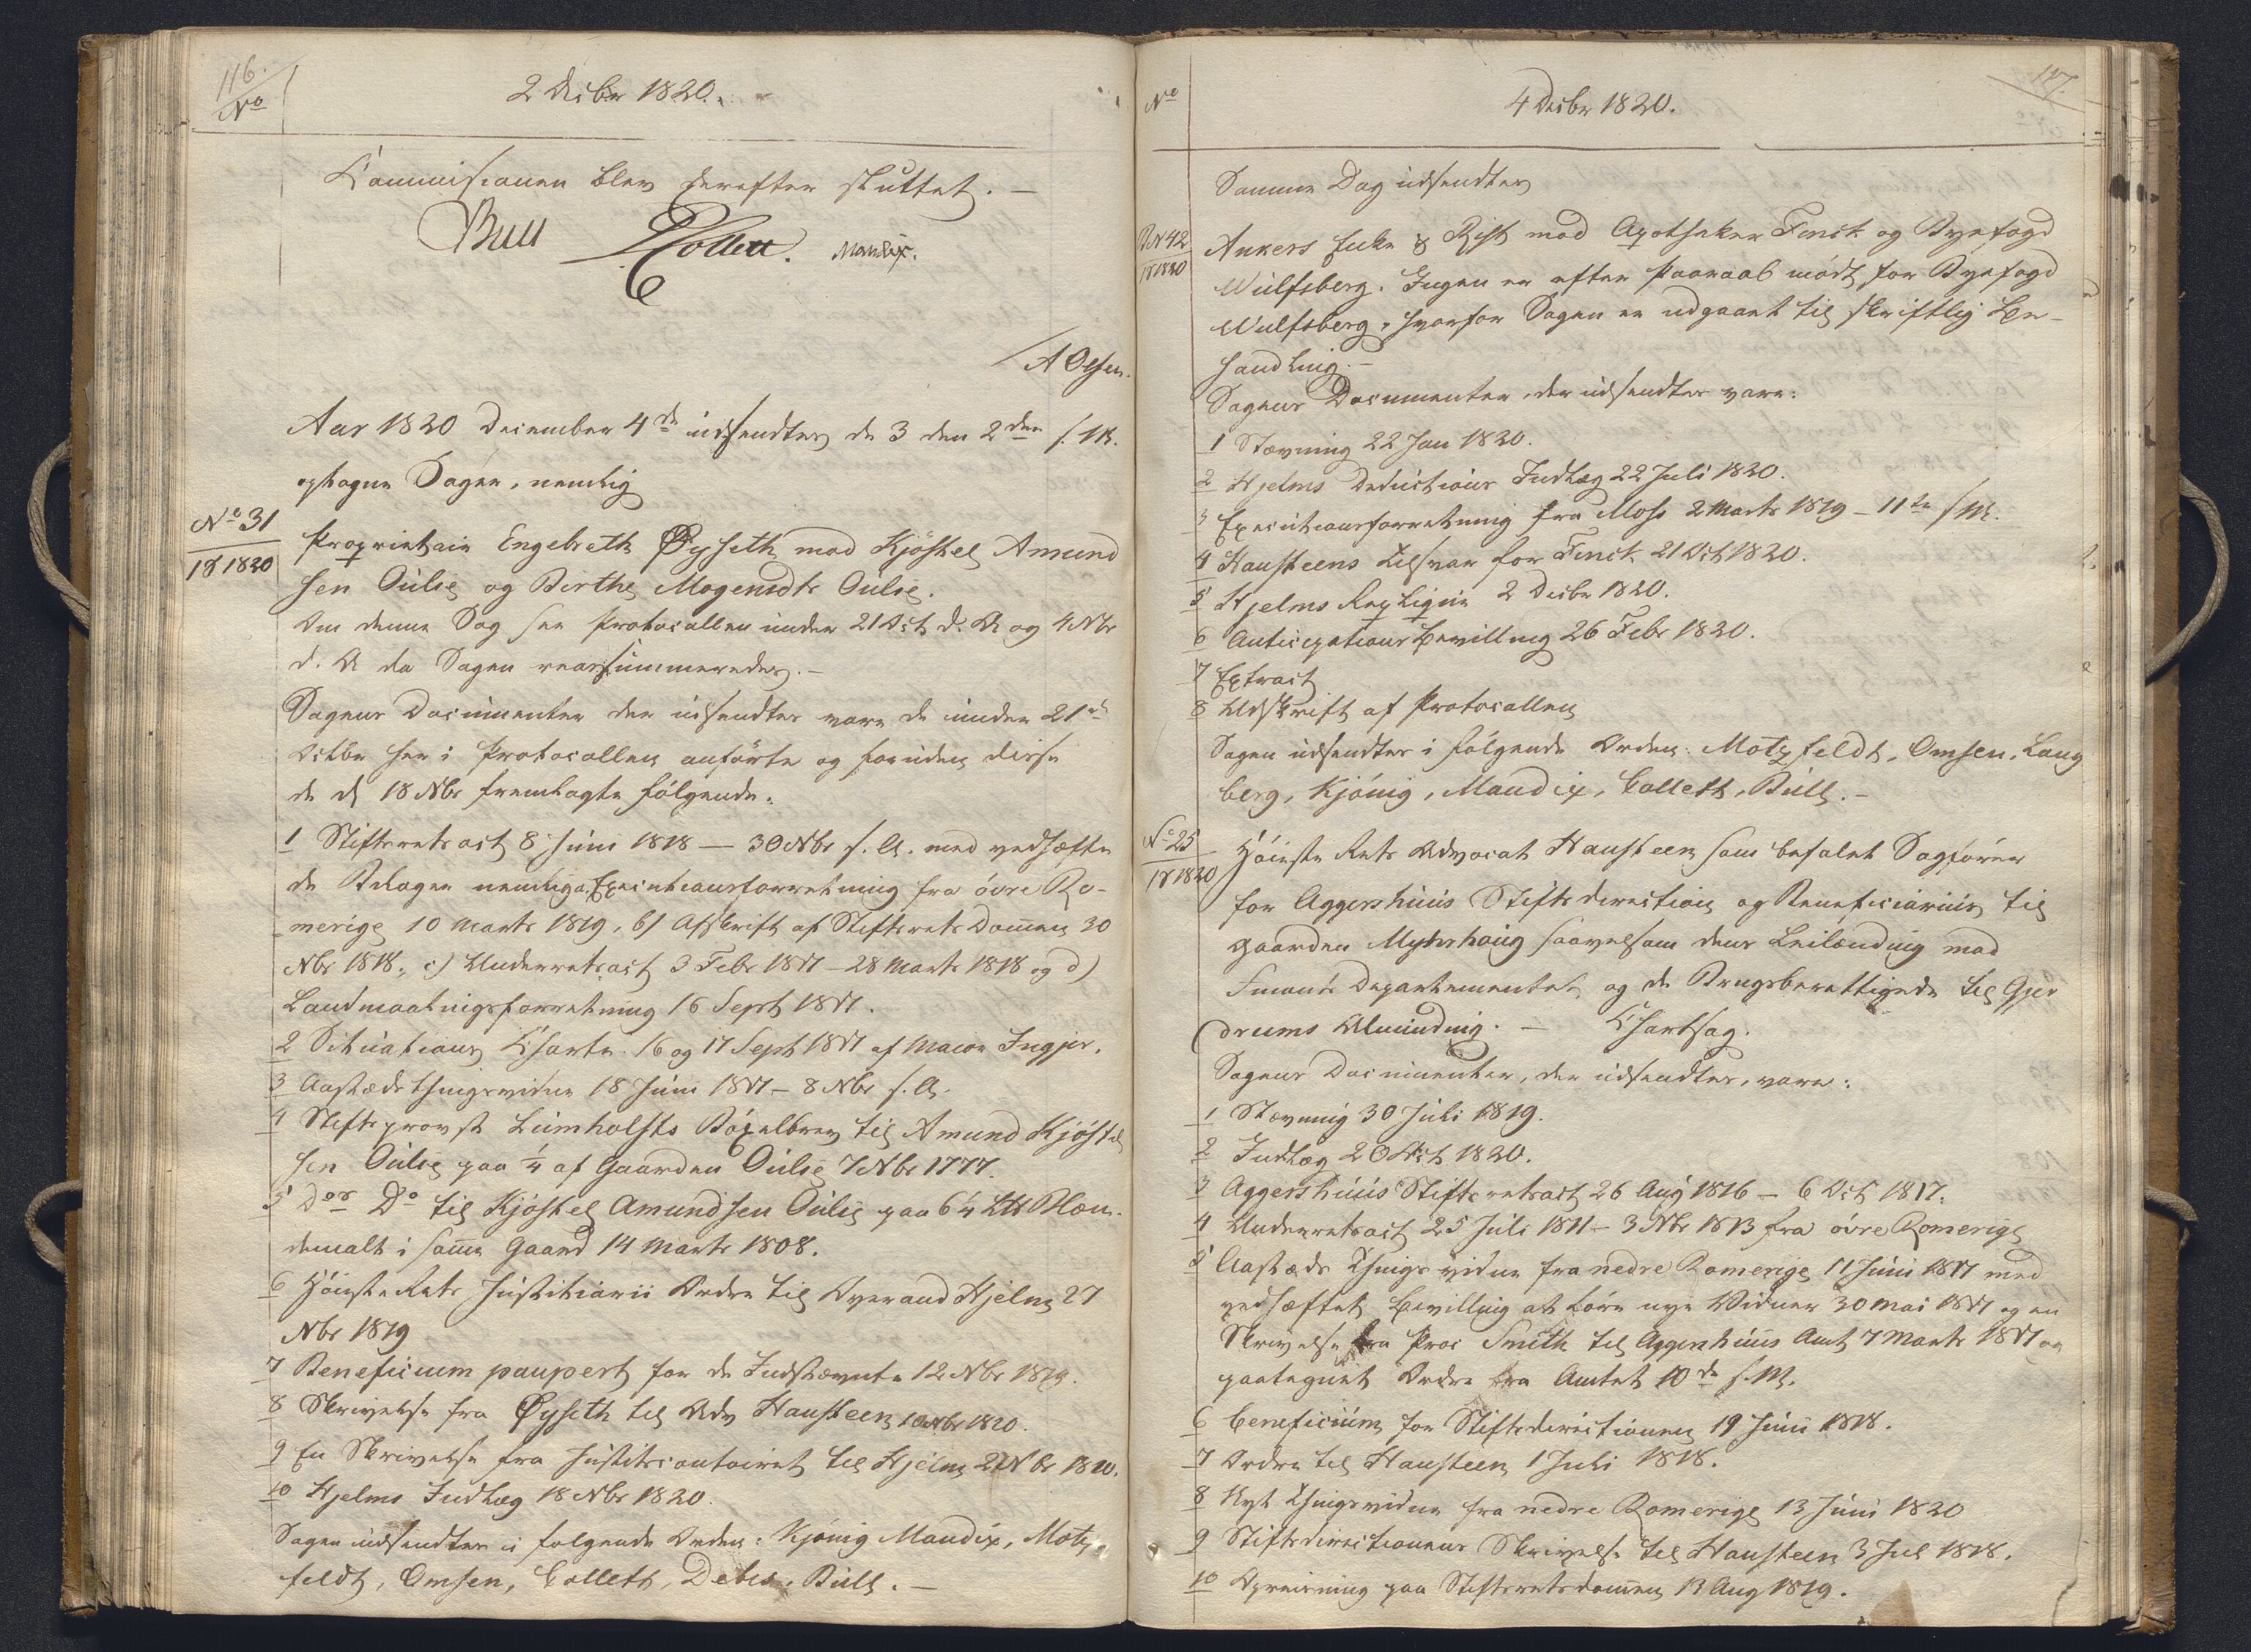 116.
No
2 Decbr 1820.
Commissionen blev derefter sluttet. —
Bull Collett. Mandix.
A Olsen.
Aar 1820 December 4de udsendtes de 3 den 2den s. M.
optagne Sager, nemlig
No 31
1820
Proprietair Engebreth Øyseth mod Kjøstel Amund
sen Oulie og Birthe Mogensdtr Oulie.
Om denne Sag see Protocollen under 21 Oct d. A og 4 Nbr
d. A da Sagen reassummeredes. —
Sagens Documenter der udsendtes vare de under 21de
Octbr her i Protocollen anførte og foruden disse
de d 18 Nbr fremlagte følgende:
1 Stiftsretsact 8 Juni 1818 — 30 Nbr s. A. med vedhæfte
de Bilager nemlig a, Executionsforretning fra øvre Ro-
merige 10 Marts 1819, b) Afskrift af Stiftsrets Dommen 30
Nbr 1818, c) Underretsact 3 Febr 1817 — 28 Marts 1818 og d)
Landmaalingsforretning 16 Sept 1817.
2 Situations Charte 16 og 17 Sept 1817 af Major Ingjer.
3 Aastæds Thingsvidne 18 Juni 1817 — 8 Nbr s. A.
4 Stiftsprovst Lumholtz Bøxelbrev til Amund Kjøstel
sen Oulie paa 1/4 af Gaarden Oulie 7 Nbr 1777.
5 Dos Do til Kjøstel Amundsen Oulie paa 6 1/4 L℔ Tℓ
demalt i samme Gaard 14 Marts 1808.
6 Høieste Rets Justitiarii Ordre til Overaud Hjelm 27
Nbr 1819
7 Beneficium paupert for de Indstævnte 12 Nbr 1819.
8 Skrivelse fra Øyseth til Adv Hansteen 10 Nbr 1820.
9 En Skrivelse fra Justitscontoiret til Hjelm 27 Nbr 1820.
10 Hjelms Indlæg 18 Nbr 1820.
Sagen udsendtes i følgende Orden: Kjønig Mandix, Motz
feldt, Omsen, Collett, Debes, Bull. —
No
4 Decbr 1820.
117.
Samme Dag udsendtes
No 42
1820
Ankers Enke & Rist mod Apotheker Finck og Byefogd
Wulfsberg. Ingen er efter Paaraab mødt for Byefogd
Wulfsberg, hvorfor Sagen er udgaaet til skriftlig Be-
handling. —
Sagens Documenter, der udsendtes vare:
1 Stævning 22 Jan 1820.
2 Hjelms Deductions Indlæg 22 Juli 1820.
3 Executionsforretning fra Moss 2 Marts 1819 — 11te s. M.
4 Hansteens Tilsvar for Finck 21 Oct 1820.
5 Hjelms Repliqve 2 Decbr 1820.
6 Anticipations Bevilling 26 Febr 1820.
7 Extract
8 Udskrift af Protocollen
Sagen udsendtes i følgende Orden: Motzfeldt, Omsen, Lang
berg, Kjønig, Mandix, Collett, Bull. —
No 25
1820
Høieste Rets Advocat Hansteen som befalet Sagfører
for Aggershuus Stifts direction og Beneficiarius til
Gaarden Myhrhoug saavelsom dens Leilænding mod
Finants Departementet og de Brugsberettigede til Gjer
drums Alminding. — Chartsag.
Sagens Documenter, der udsendtes, vare:
1 Stævning 30 Juli 1819.
2 Indlæg 20 Oct 1820.
3 Aggershuus Stiftsretsact 26 Aug 1816 — 6 Oct 1817.
4 Underretsact 25 Juli 1811 — 3 Nbr 1813 fra øvre Romerige
5 Aastæds Things vidne fra nedre Romerige 17 Juni 1817 med
vedhæftet Bevilling at føre nye Vidner 30 Mai 1817 og en
Skrivelse fra Proc Smith til Aggershuus Amt 7 Marts 1817 og
paategnet Ordre fra Amtet 10de s. M.
6 Beneficium for Stiftsdirectionen 19 Juni 1818.
7 Ordre til Hansteen 1 Juli 1818.
8 Nyt Thingsvidne fra nedre Romerige 13 Juni 1820
9 Stiftsdirectionens Skrivelse til Hansteen 3 Jul 1818.
10 Opreisning paa Stiftsretsdommen 13 Aug 1819.